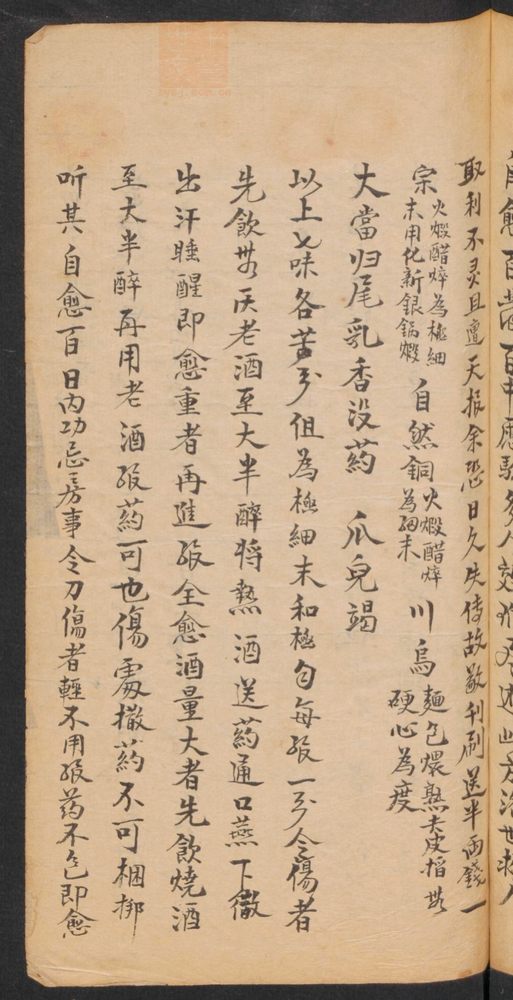 取利不灵且遭天报余恐日久失传故敬刊刷送半両錢一
宗火煅醋焠為極細末用化新銀鍋煅自然銅火煅醋焠為細末川烏麺包煨熟去皮指無硬心為度
大當归尾乳香没葯 爪皃竭
以上七味各苦分但為極細末和極匀每服一分金傷者
先飲無灰老酒至大半醉将熱酒送葯通口燕下徽
出汗睡醒即愈重者再進服全愈酒量大者先飲燒酒
至大半醉再用老酒服葯可也傷處撒葯不可梱挷
听其自愈百日内功忌房事令刀傷者輕不用服葯不包即愈